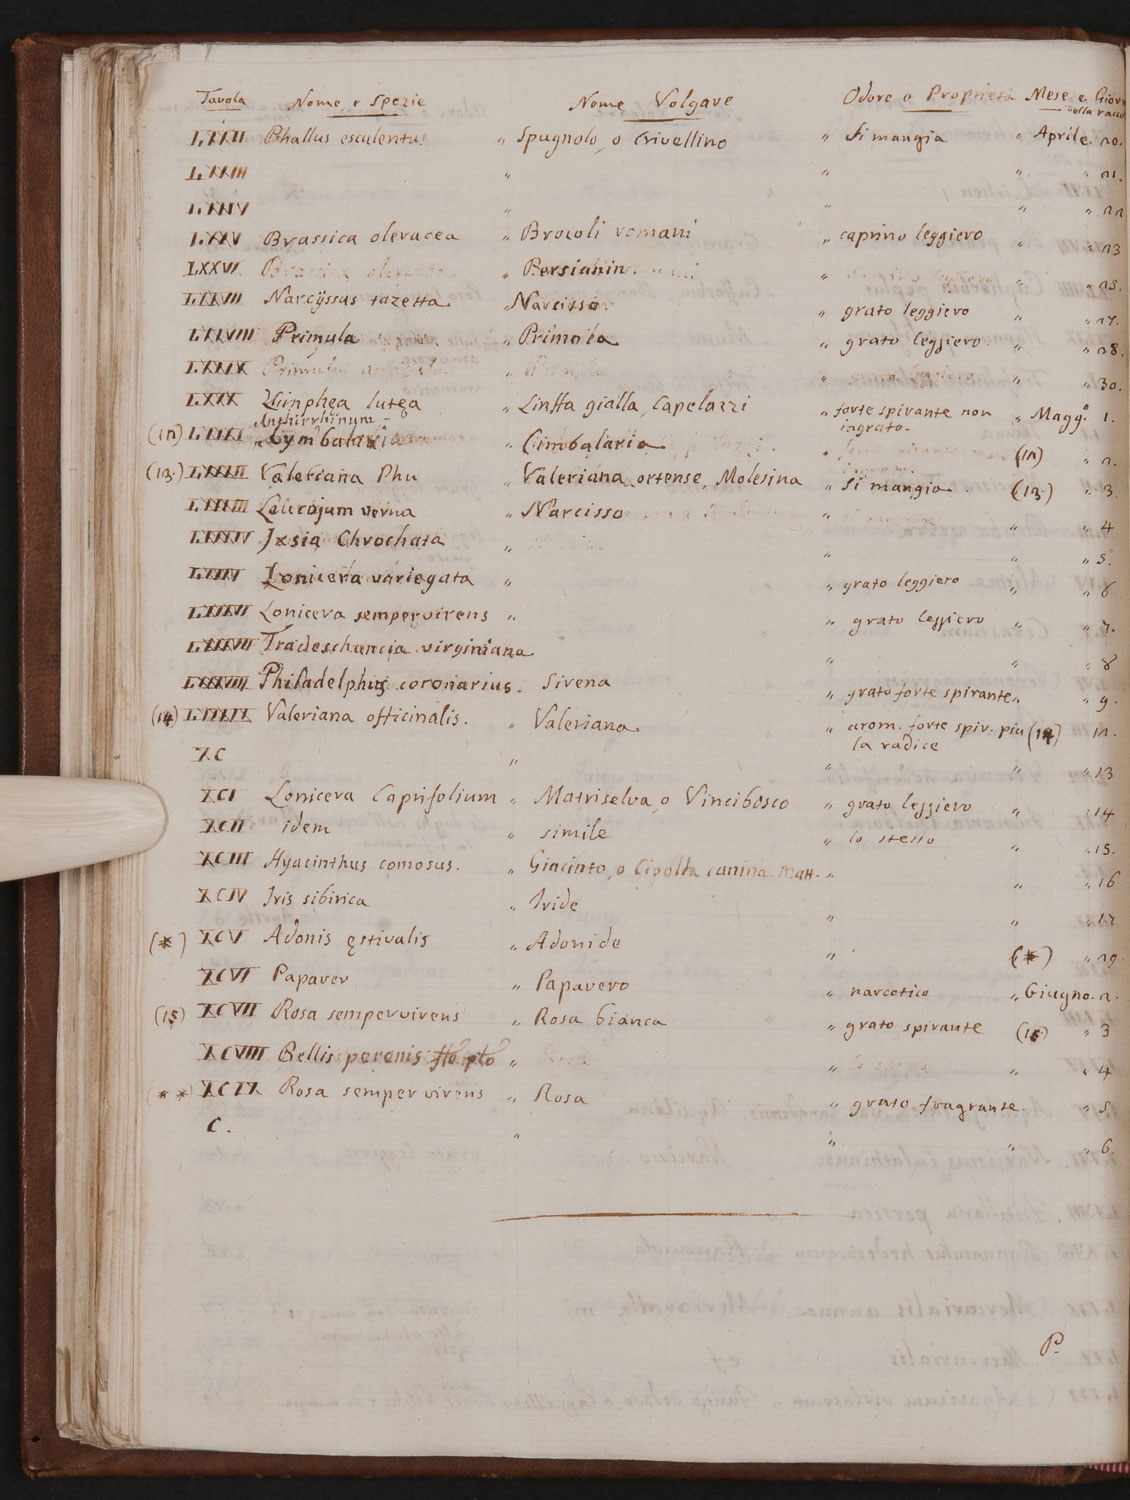 Tavola Nome e Spezie Nome Volgare Odore e Proprietà Mese e Giorn
della racco
LXXII Phallus esculentus " Spugnolo, o Crivellino " Si mangia " Aprile. 20.
LXXIII " " " " 21.
LXXIV " " " 22
LXXV Brassica oleracea " Brocoli romani " caprino leggiero " " 23
LXXVI " Persianin " " " 25.
LXXVII Narcÿssus tazetta " Narcisso " grato leggiero " " 27.
LXXVIII Primula " Primola " grato leggiero " " 28.
LXXIX " " " " 30.
LXXX Ninphea lutea " Linffa gialla, Capelazzi " forte spirante non " Magg.o 1.
ingrato.
Anthirrhinum
(12) LXXXI Cymbalaria " Cimbalaria " (12) " 2.
(13.) LXXXII Valeriana Phu " Valeriana ortense, Molesina " Si mangia (13.) " 3.
LXXXIII Leucojum verna " Narcisso " " " 4
LXXXIV Jxsia Chrochata " " " " 5.
LXXXV Lonicera variegata " " grato leggiero " " 6
LXXXVI Lonicera sempervirens " " grato leggiero " " 7.
LXXXVII Tradeschancia virginiana " " " 8
LXXXVIII Philadelphus coronarius. Sirena " grato forte spirante " " 9.
(14) LXXXIX Valeriana officinalis. " Valeriana " arom. forte spir. più (14) 12.
la radice
XC " " " " 13
XCI Lonicera Caprifolium " Matriselva, o Vincibosco " grato leggiero " " 14
XCII idem " simile " lo stesso " " 15.
XCIII Hyacinthus comosus. " Giacinto, o Cipolla canina. Matt. " " " 16
XCIV Iris sibirica " Iride " " " 17
(*) XCV Adonis ęstivalis " Adonide " (*) " 29
XCVI Papaver " Papavero " narcotico " Giugno. 2.
(15) XCVII Rosa sempervirens " Rosa bianca " grato spirante (15) " 3
XCVIII Bellis perenis " " " " 4
(**) XCIX Rosa sempervirens " Rosa " grato fragrante. " 5
C. " " " " 6.
P.